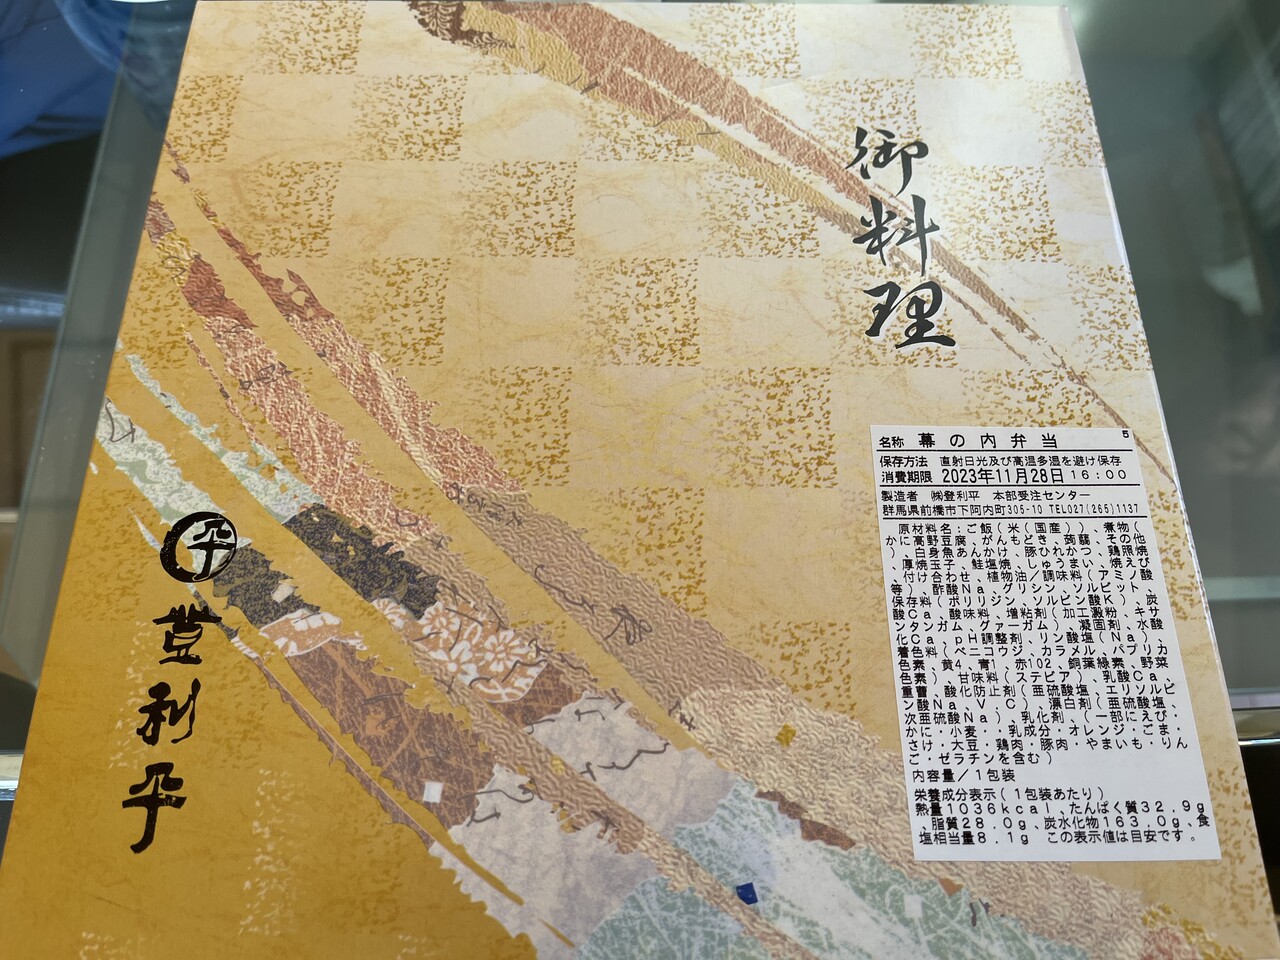 御料理
平
登利平
名称 幕の内弁当 5
保存方法 直射日光及び高温多湿を避け保存
消費期限 2023年11月28日 16:00
製造者 ㈱登利平 本部受注センター
群馬県前橋市下阿内町305-10 TEL027(265)1137
原材料名:ご飯(米(国産))、煮物(
かに高野豆腐、がんもどき、蒟蒻、その他
)、白身魚あんかけ、豚ひれかつ、鶏照焼
、厚焼玉子、鮭塩焼、しゅうまい、焼えび
、付け合わせ、植物油/調味料(アミノ酸
等)、酢酸Na、グリシン、ソルビット、
保存料(ポリリジン、ソルビン酸K)、炭
酸Ca、酸味料、増粘剤(加工澱粉、キサ
ンタンガム、グァーガム)、凝固剤、水酸
化Ca、pH調整剤、リン酸塩(Na)、
着色料(ベニコウジ、カラメル、パプリカ
色素、黄4、青1、赤102、銅葉緑素、野菜
色素)、甘味料(ステビア)、乳酸Ca、
重曹、酸化防止剤(亜硫酸塩、エリソルビ
ン酸Na、V.C)、漂白剤(亜硫酸塩、
次亜硫酸Na)、乳化剤、(一部にえび・
かに・小麦・・乳成分・オレンジ・ごま・
さけ・大豆・鶏肉・豚肉・やまいも・りん
ご・ゼラチンを含む)
内容量/1包装
栄養成分表示(1包装あたり)
熱量1036kcal、たんぱく質32.9g
、脂質28.0g、炭水化物163.0g、食
塩相当量8.1g この表示値は目安です。